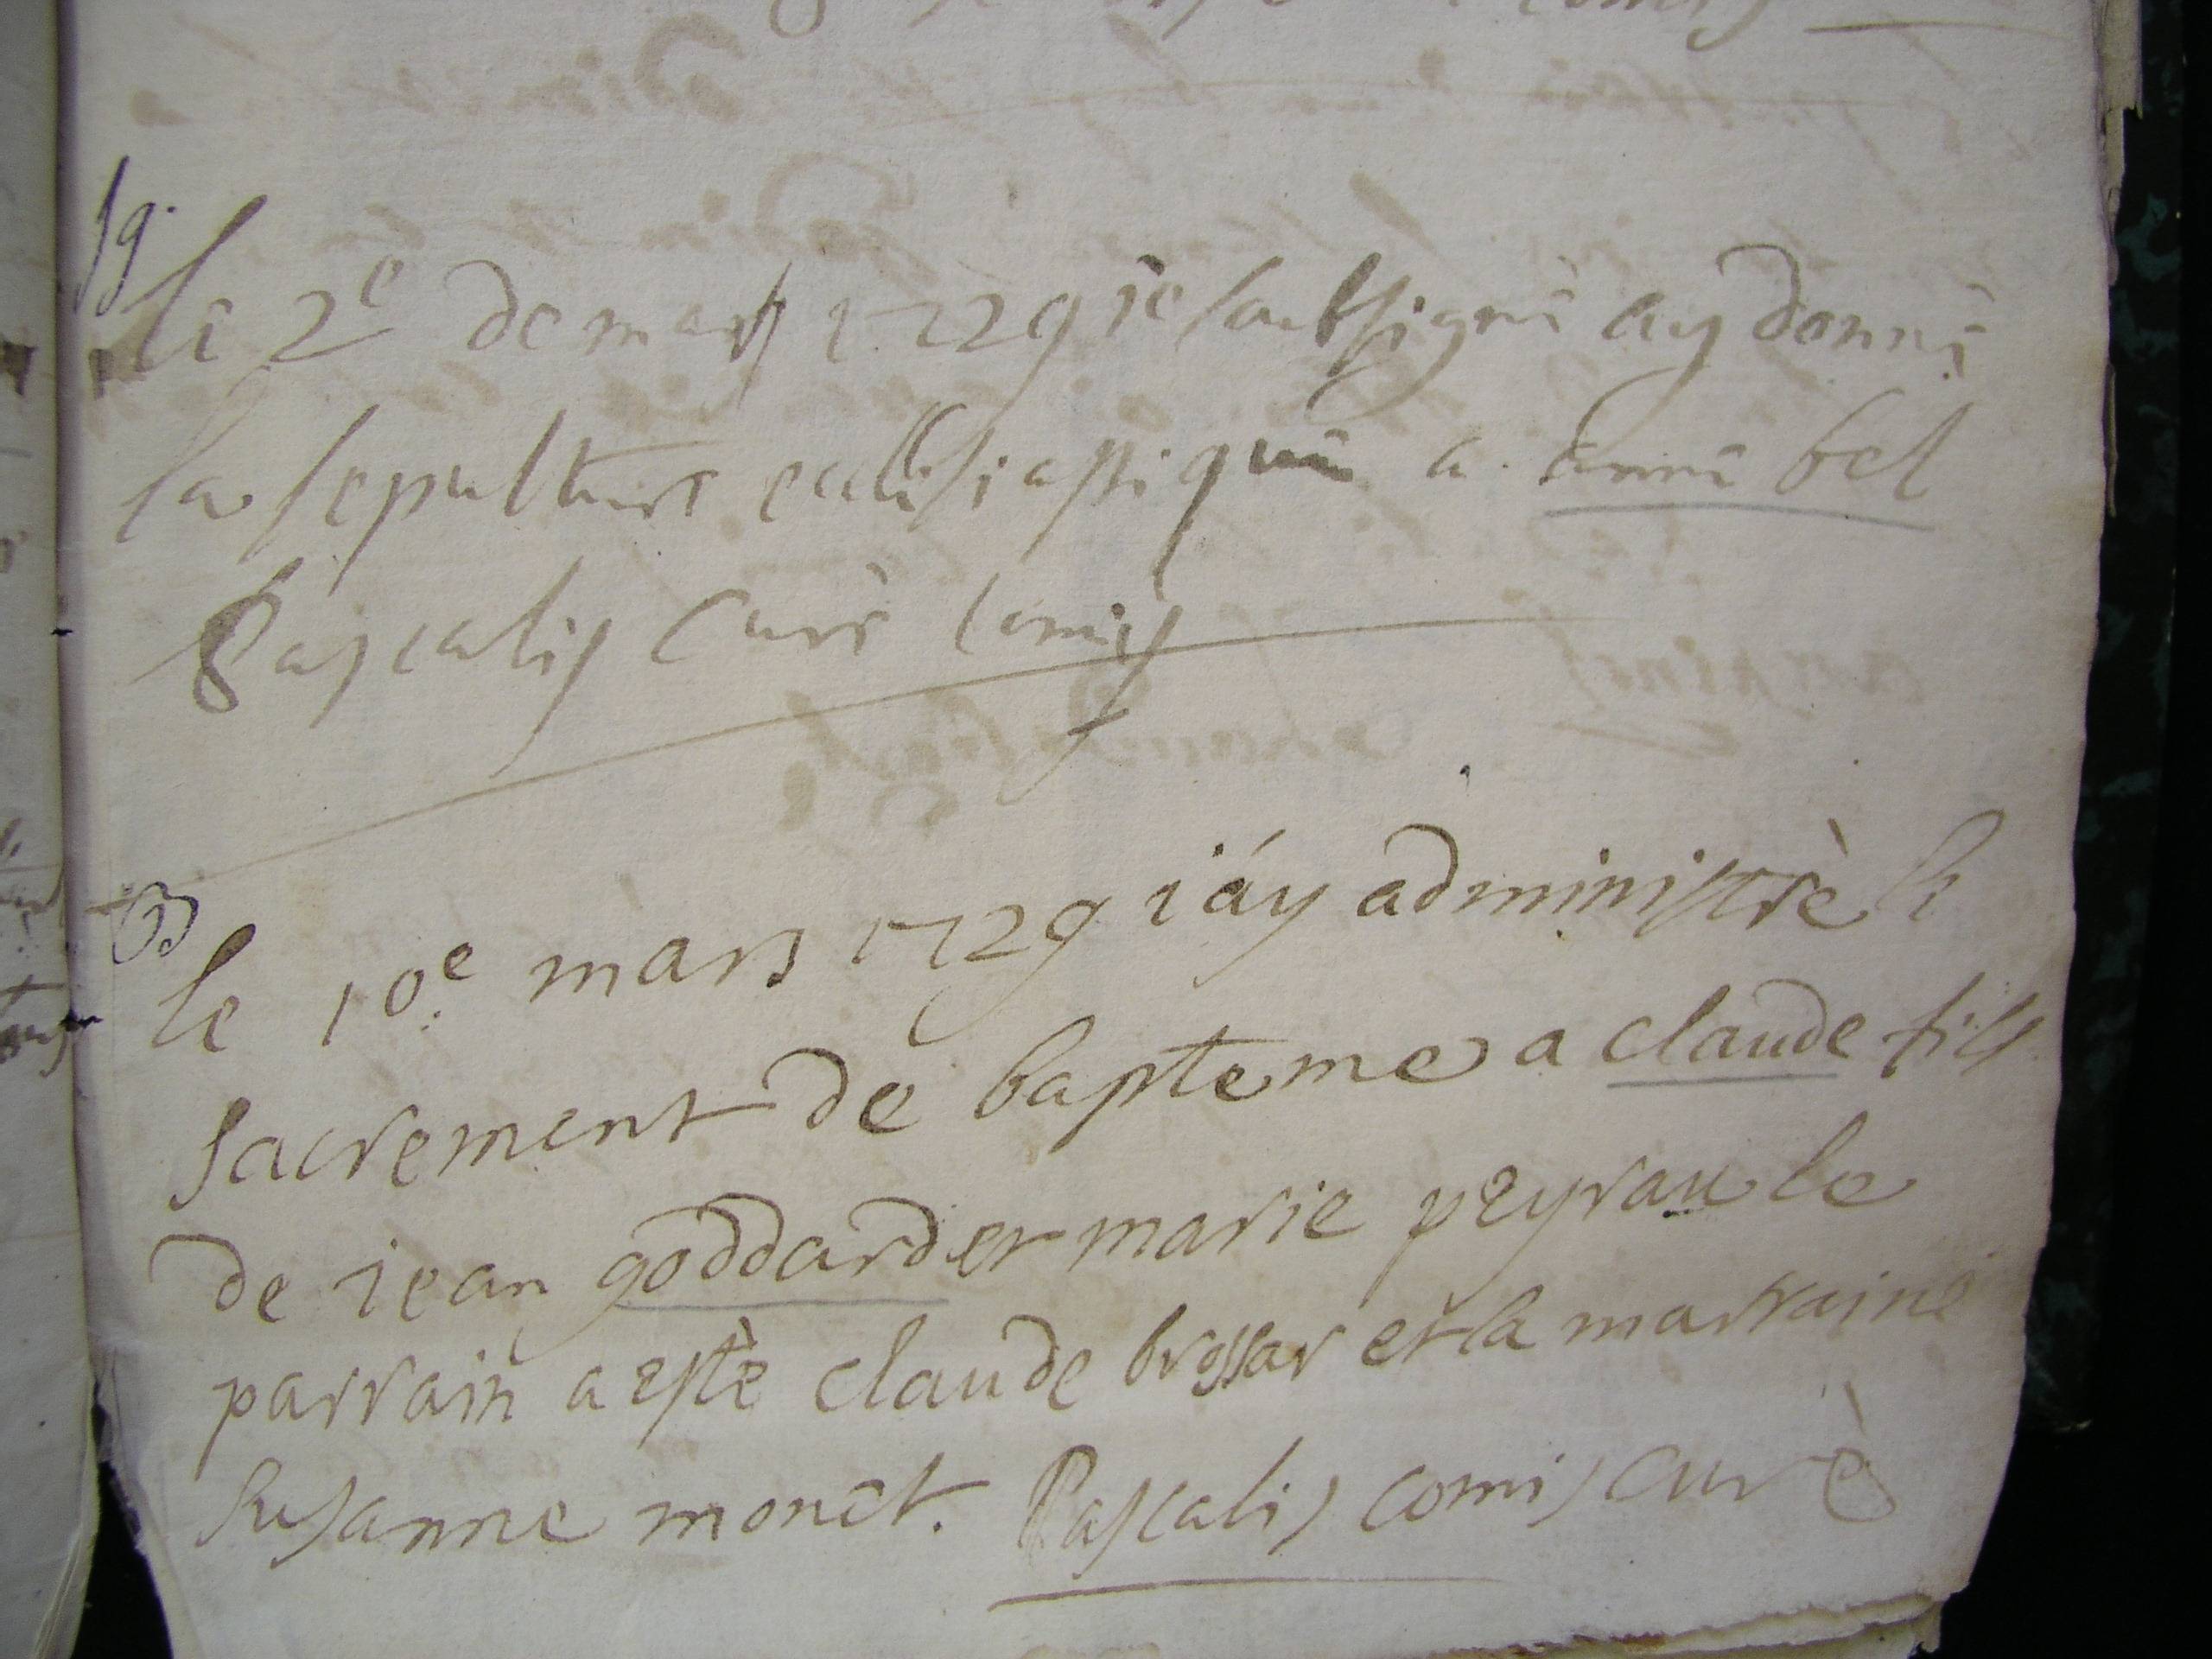 19.
le 2e de mars 1729 ie soubsigné ay donné
la sepulture ecclesiastique a anne bel
Pascalis Curé comis
B
le 10e mars 1729 i'áy administrè le
sacrement de bapteme a claude fils
de iean goddard et marie peyrau le
parrain a estè claude brossar et la marraine
susanne monet. Pascalis comis curè